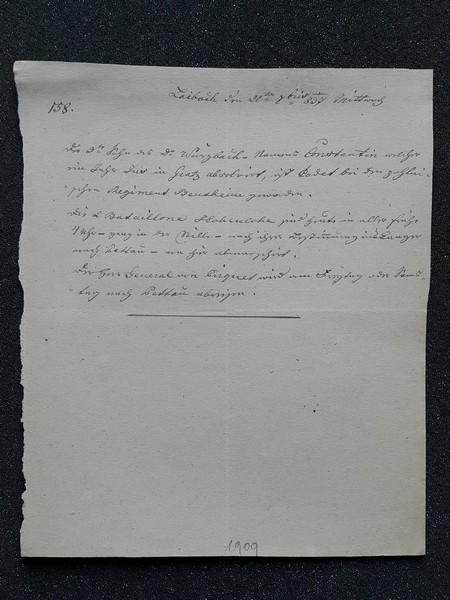 Laibach den 20ten 7ber 837 Mittwoch
158.
Der Sohn des Dr Wurzbach - Namens Constantin welcher
ein Jahr Jus in Gratz absolvirt, ist Cadet bei dem
Regiment Bentheim geworden.
Die 2 Bataillone Hohenlohe sind heute in aller Früh
4 Uhr - ganz in der Stille - nach ihrer Bestimmung ins Lager
nach Pettau - von hier abmarschirt.
Der Herr General von wird am Freytag oder Sams-
tag nach Pettau abreisen.
1909